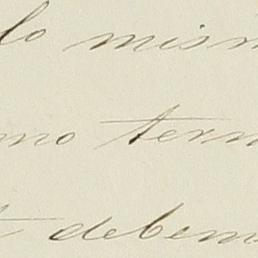 lo mism
mo term
debem